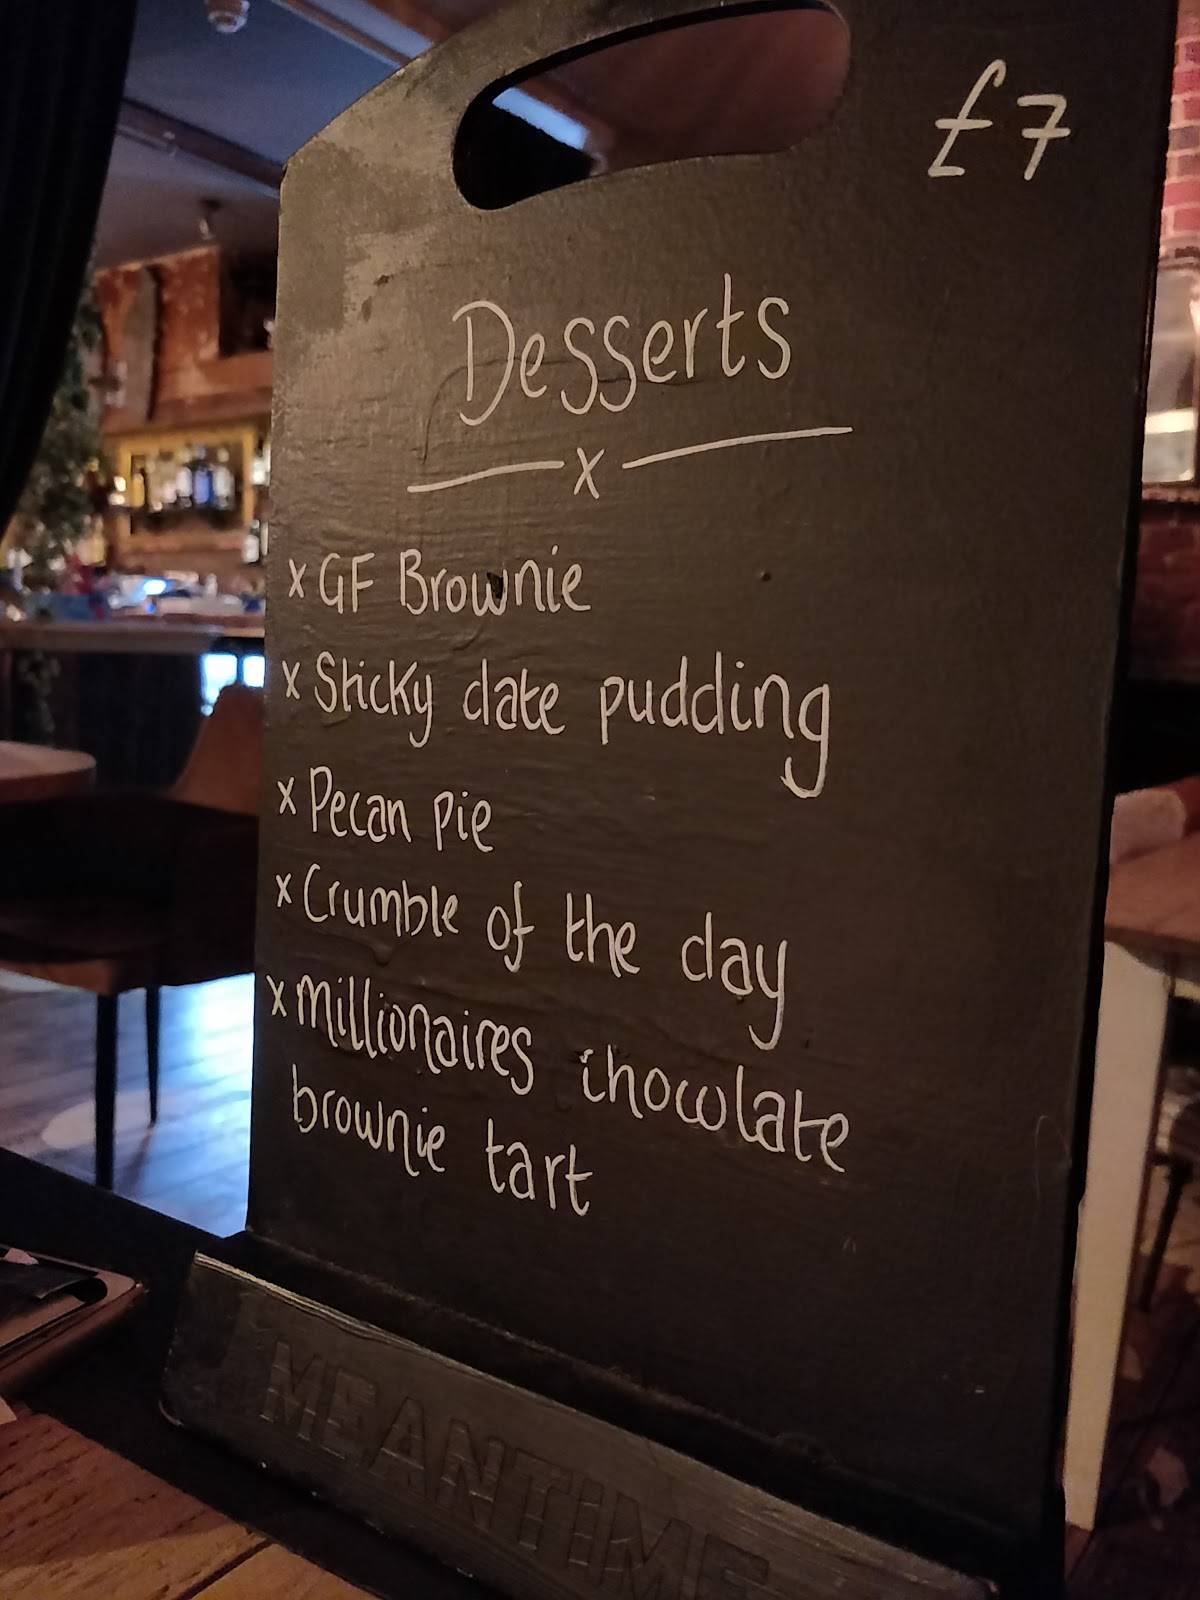 £7
Desserts
x
x GF Brownie
x Sticky date pudding
x Pecan pie
x Crumble of the day
x Millionaires chocolate
brownie tart
MEANTIME